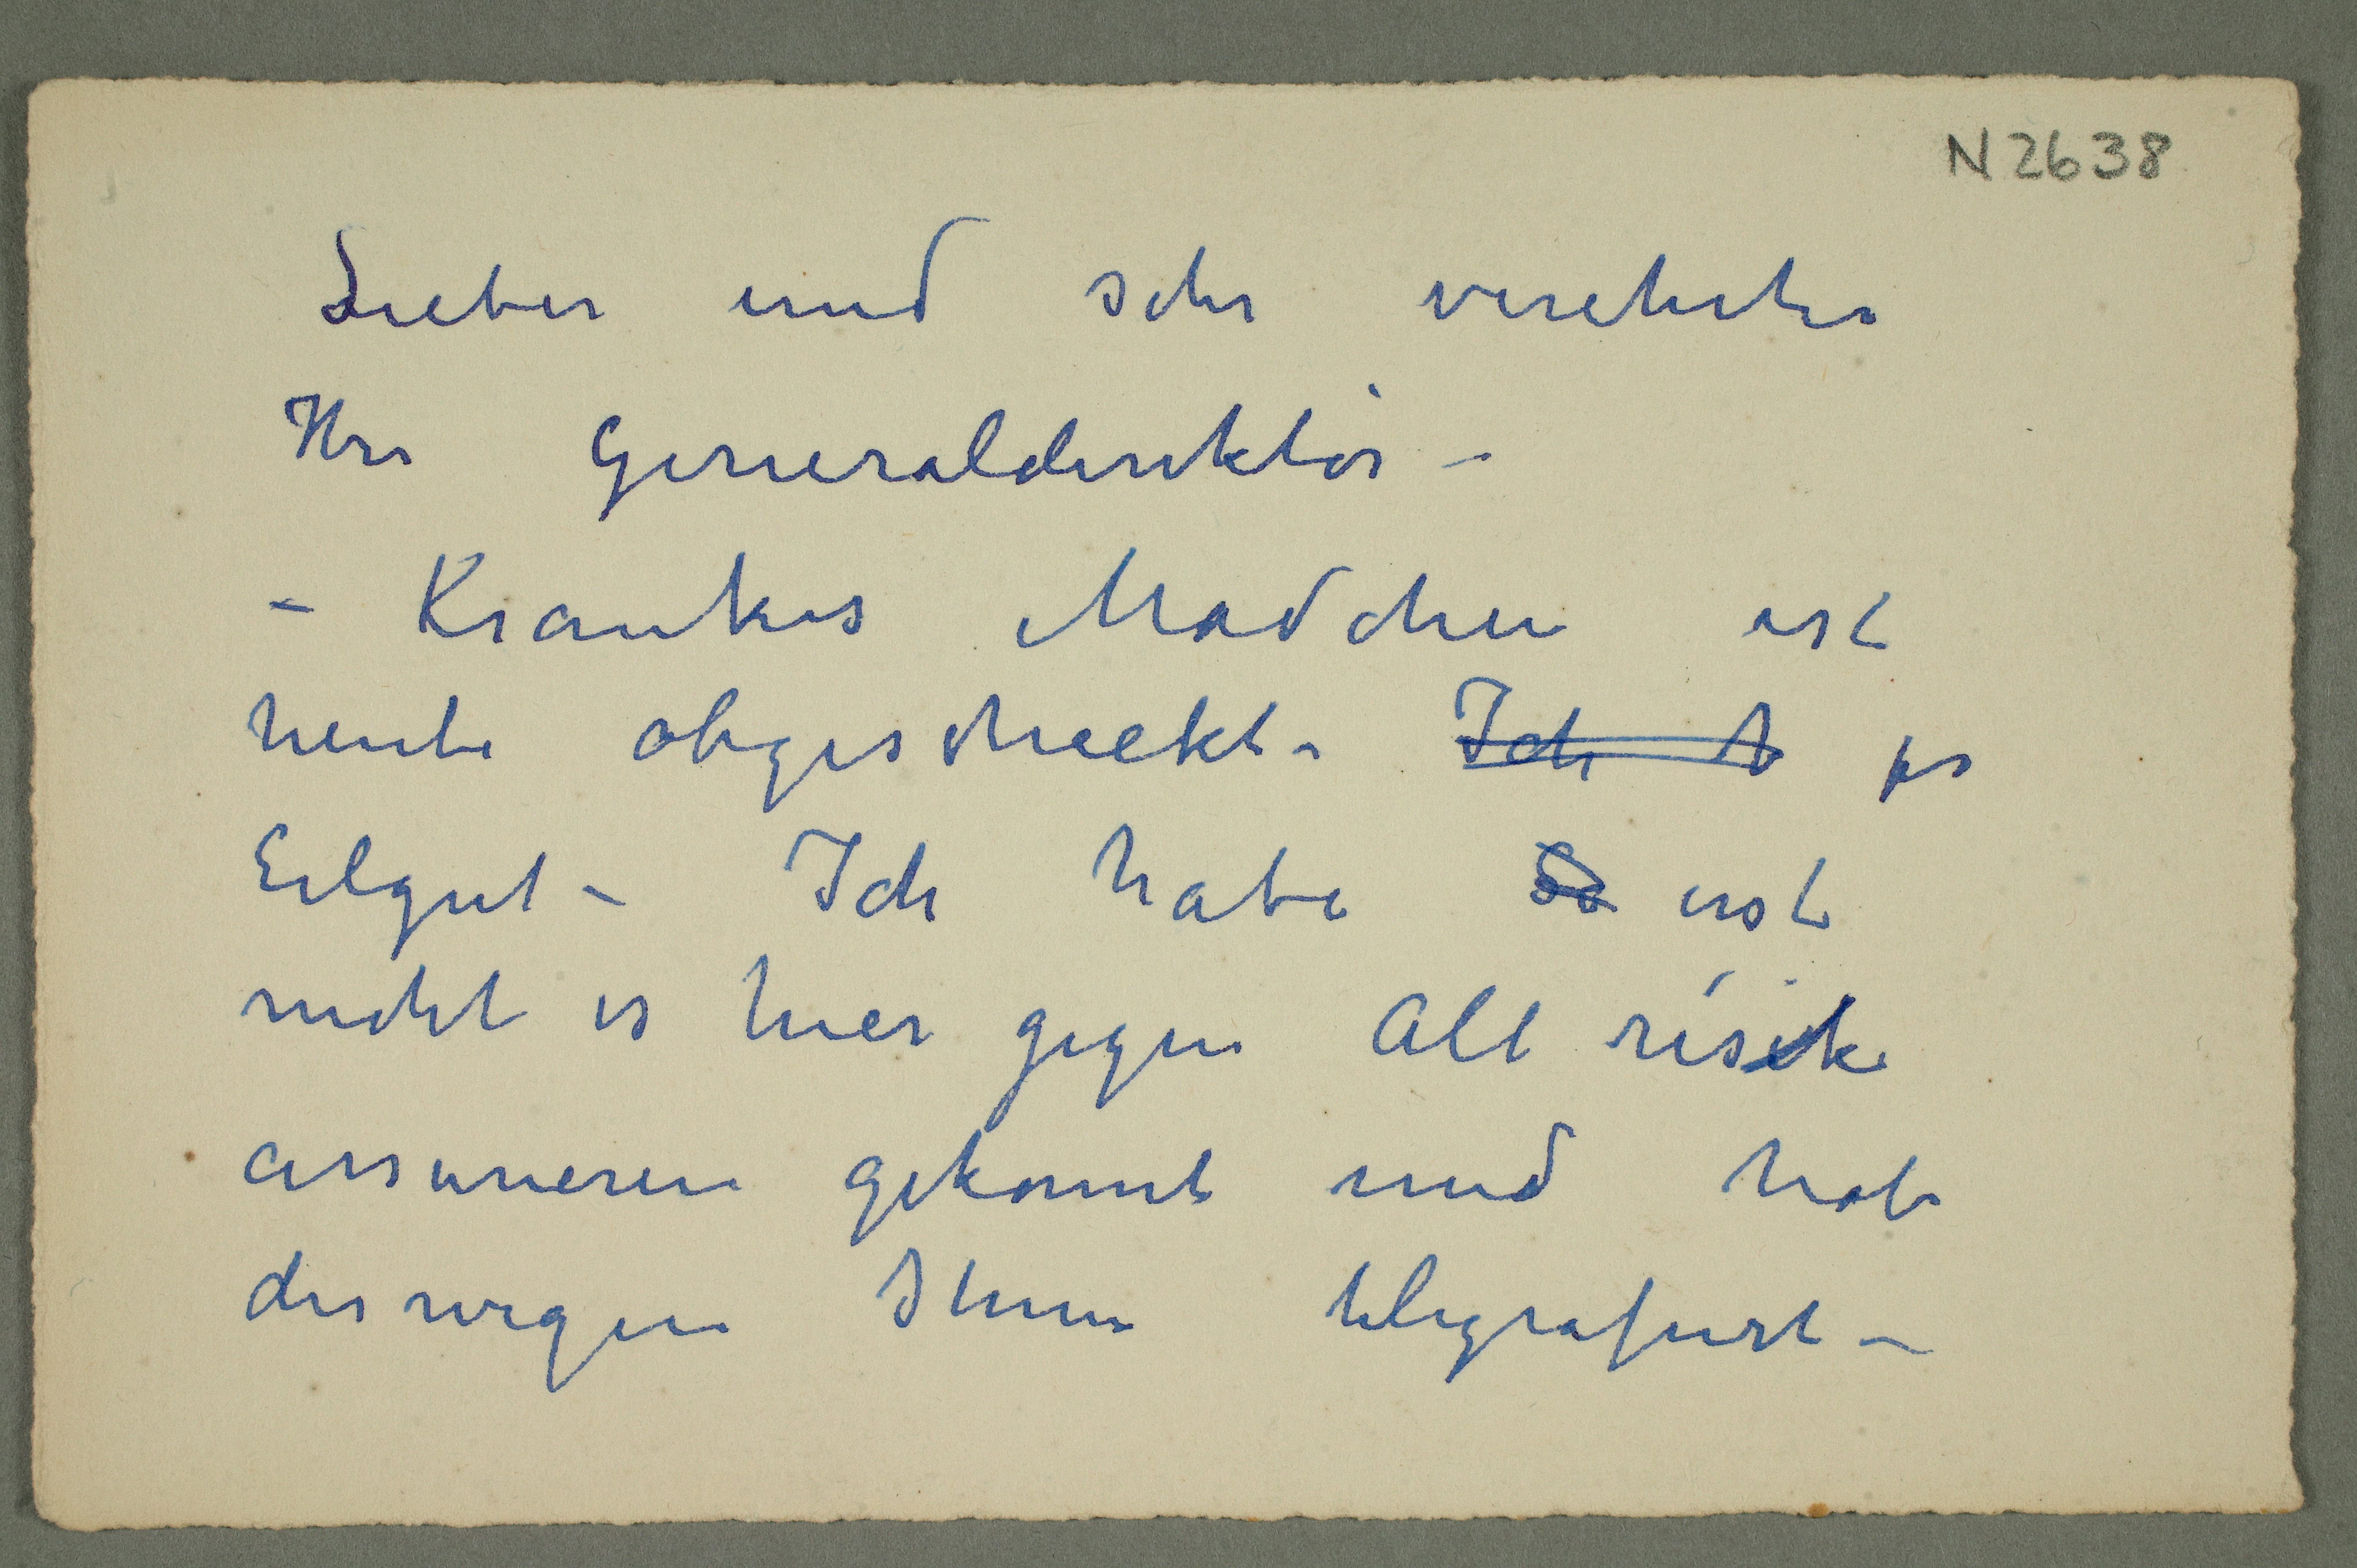 N 2638
Lieber und sehr verehrter
Herr Generaldirektör –
– Krankes Mädchen ist
heute abgeschieckt – Ich h pr
Eilgut – Ich habe erst
nicht es hier gegen All risik
assurieren gekonnt und habe
deswegen Ihnen telegrafiert –